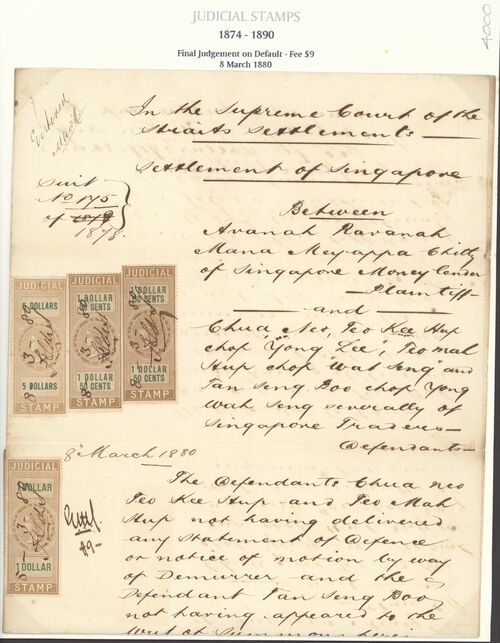 JUDICIAL STAMPS
1874 - 1890
Final Judgement on Default - Fee $9
8 March 1880
4000
Entered
In the Supreme Court of the
Straits Settlements
Settlement of Singapore
Suit
No 175
of 1879
1878.
Between
Avanah Ravanah
Mana Meyappa Chitty
of Singapore Money lender
Plaintiff
and
Chua Neo, Teo Kee Hup
chop "Yong Lee", Teo Mah
Hup chop "Wat Seng" and
Tan Seng Boo chop Yong
Wah Seng severally of
Singapore Traders
Defendants
JUDICIAL
5 DOLLARS
5 DOLLARS
STAMP
JUDICIAL
1 DOLLAR
50 CENTS
1 DOLLAR
50 CENTS
STAMP
JUDICIAL
1 DOLLAR
50 CENTS
1 DOLLAR
50 CENTS
STAMP
8 March 1880
JUDICIAL
1 DOLLAR
1 DOLLAR
STAMP
$9-
The Defendants Chua Neo
Teo Kee Hup and Teo Mah
Hup not having delivered
any Statement of Defence
or notice of motion by way
of Demurrer and the
Defendant Tan Seng Boo
not having appeared to the
Writ of Summons